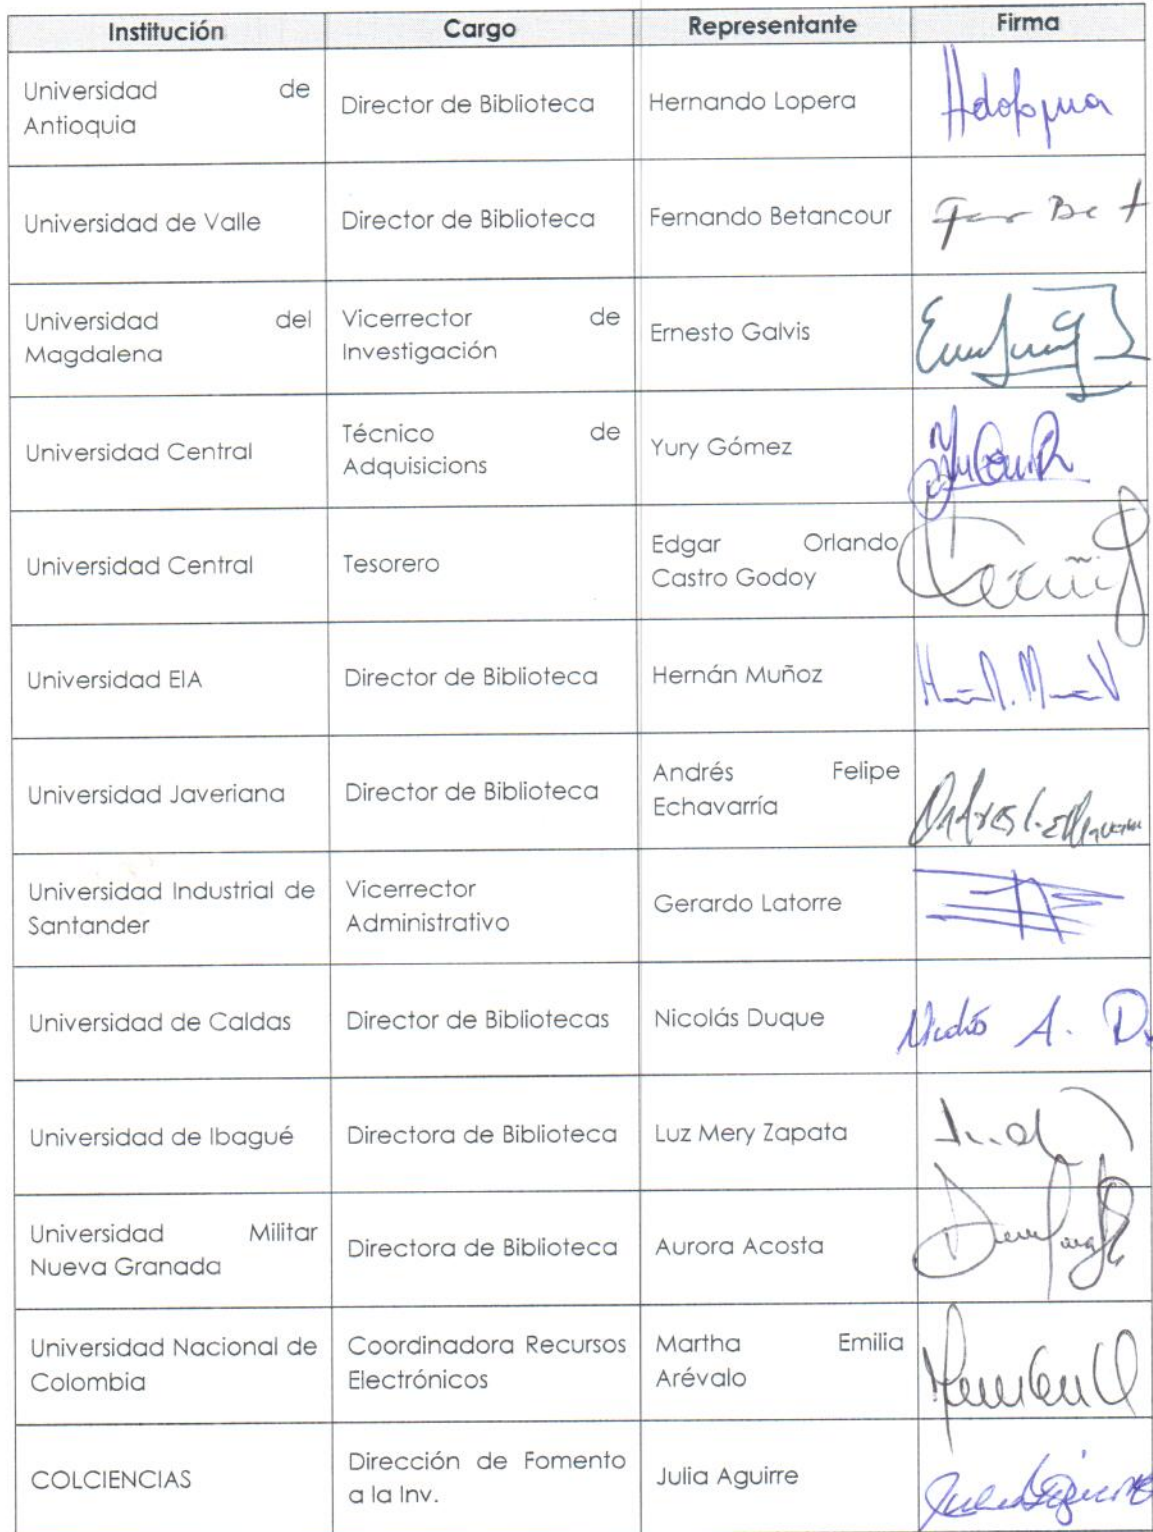 Institución Cargo Representante Firma
Universidad de
Antioquia
Director de Biblioteca
Hernando Lopera
Universidad de Valle
Director de Biblioteca
Fernando Betancour
Universidad del
Magdalena
Vicerrector de
Investigación
Ernesto Galvis
Universidad Central
Técnico de
Adquisicions
Yury Gómez
Universidad Central
Tesorero
Edgar Orlando
Castro Godoy
Universidad EIA
Director de Biblioteca
Hernán Muñoz
Universidad Javeriana
Director de Biblioteca
Andrés Felipe
Echavarría
Universidad Industrial de
Santander
Vicerrector
Administrativo
Gerardo Latorre
Universidad de Caldas
Director de Bibliotecas
Nicolás Duque
Universidad de Ibagué
Directora de Biblioteca
Luz Mery Zapata
Universidad Militar
Nueva Granada
Directora de Biblioteca
Aurora Acosta
Universidad Nacional de
Colombia
Coordinadora Recursos
Electrónicos
Martha Emilia
Arévalo
COLCIENCIAS
Dirección de Fomento
a la Inv.
Julia Aguirre